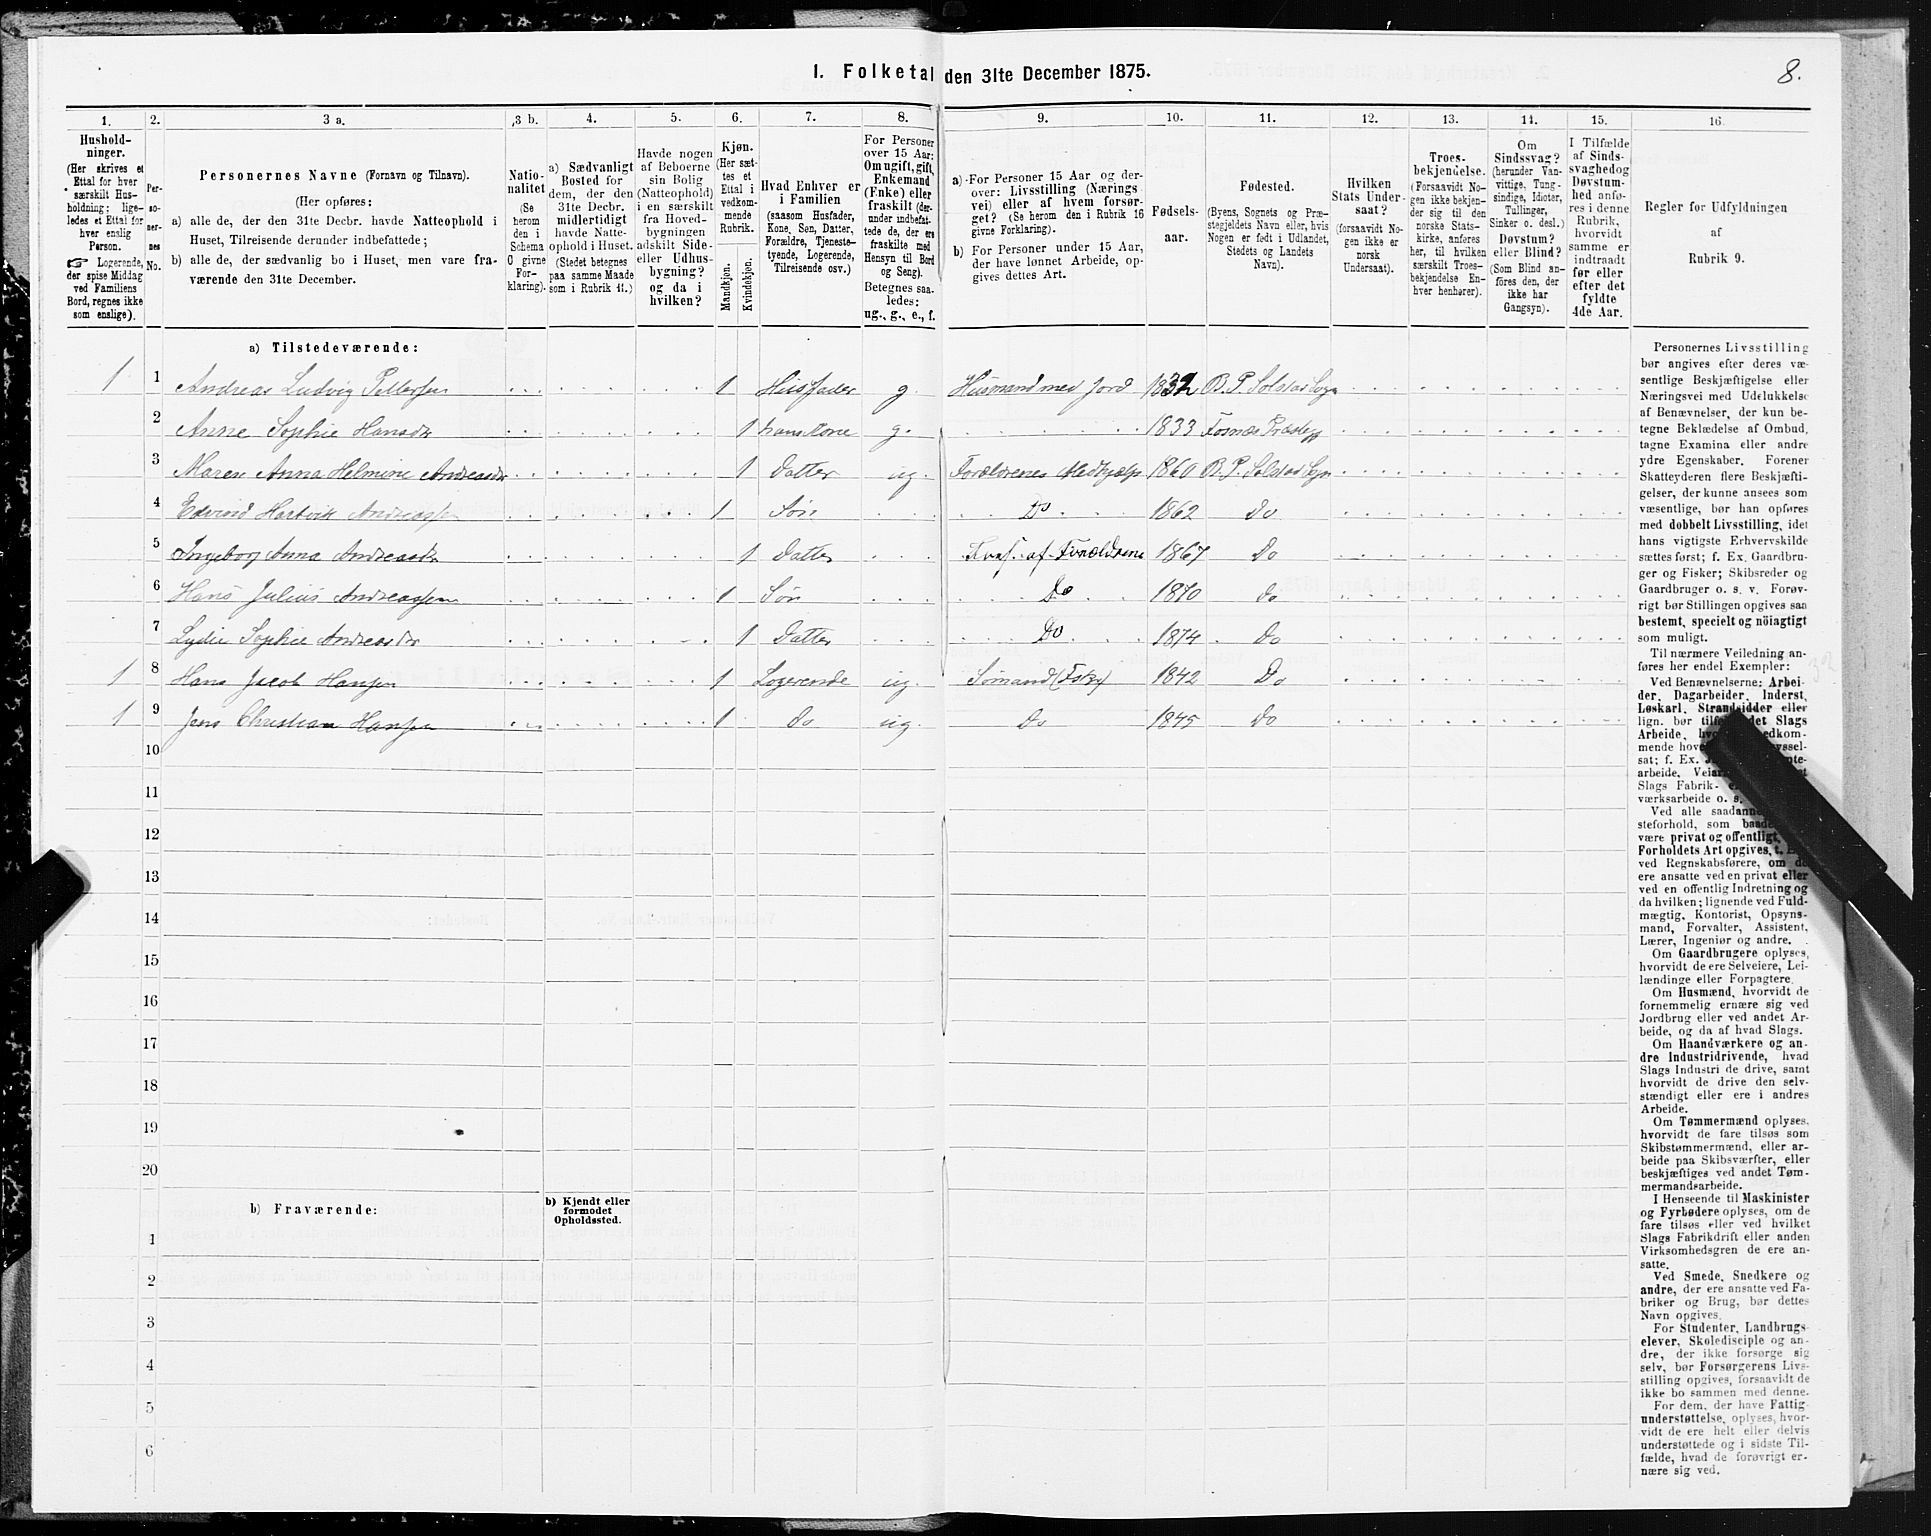 8.
1. Folketal den 31te December 1875.
1. 2. 3 a. 3 b. 4. 5. 6. 7. 8. 9. 10. 11. 12. 13. 14. 15. 16.
Hushold-
ninger.
(Her skrives et
Ettal for hver
særskilt Hus-
holdning; lige-
ledes et Ettal for
hver enslig
Person.
☞ Logerende,
der spise Middag
ved Familiens
Bord, regnes ikke
som enslige).
Per-
so-
ner-
nes
No.
Personernes Navne (Fornavn og Tilnavn).
(Her opføres:
a) alle de, der den 31te Decbr. havde Natteophold i
Huset, Tilreisende derunder indbefattede;
b) alle de, der sædvanlig bo i Huset, men vare fra-
værende den 31te December.
Natio-
nalitet
(Se
herom
den i
Schema
O givne
For-
klaring).
a) Sædvanligt
Bosted for
dem, der den
31te Decbr.
midlertidigt
havde Natte-
ophold i Huset.
(Stedet betegnes
paa samme Maade
som i Rubrik 11.)
Havde nogen
af Beboerne
sin Bolig
(Natteophold)
i en særskilt
fra Hoved-
bygningen
adskilt Side-
eller Udhus-
bygning?
og da i
hvilken?
Kjøn.
(Her sæt-
tes et
Ettal i
vedkom-
mende
Rubrik.
Mandkjøn.
Kvindekjøn.
Hvad Enhver er
i Familien
(saasom Husfader,
Kone, Søn, Datter,
Forældre, Tjeneste-
tyende, Logerende,
Tilreisende osv.)
For Personer
over 15 Aar:
Om ugift, gift,
Enkemand
(Enke) eller
fraskilt (der-
under indbefat-
tede de, der ere
fraskilte med
Hensyn til Bord
og Seng).
Betegnes saa-
ledes:
ug., g., e., f.
a) For Personer 15 Aar og der-
over: Livsstilling (Nærings
vei) eller af hvem forsør-
get? (Se herom den i Rubrik 16
givne Forklaring).
b) For Personer under 15 Aar,
der have lønnet Arbeide, op-
gives dettes Art.
Fødsels-
aar.
Fødested.
(Byens, Sognets og Præ-
stegjeldets Navn eller, hvis
Nogen er født i Udlandet,
Stedets og Landets
Navn).
Hvilken
Stats Under-
saat?
(forsaavidt No-
gen ikke er
norsk
Undersaat).
Troes-
bekjendelse.
(Forsaavidt No-
gen ikke bekjen-
der sig til den
norske Stats-
kirke, anføres
her, til hvilken
særskilt Troes-
bekjendelse En-
hver henhører).
Om
Sindssvag?
(herunder Van-
vittige, Tung-
sindige, Idioter,
Tullinger,
Sinker o. desl.)
Døvstum?
eller Blind?
(Som Blind an-
føres den, der
ikke har
Gangsyn).
I Tilfælde
af Sinds-
svaghed og
Døvstum-
hed anfø-
res i denne
Rubrik,
hvorvidt
samme er
indtraadt
før eller
efter det
fyldte
4de Aar.
Regler for Udfyldningen
af
Rubrik 9.
a) Tilstedeværende:
1 1 Andreas Ludvig Pettersen 1 Husfader g. Husmand med Jord 1832 B. P. Solstad Sogn
2 Anne Sophie Hansdr 1 hans Kone g. 1833 Fosnæs Præstegj
3 Maren Anna Helmine Andreasdr 1 Datter ug. Forældrenes Medhjælp 1860 B. P. Solstad Sogn
4 Edvind Hartvik Andreassen 1 Søn Do 1862 Do
5 Ingeborg Anna Andreasdr 1 Datter Fors. af Forældrene 1867 Do
6 Hans Julius Andreassen 1 Søn Do 1870 Do
7 Lydie Sophie Andreasdr 1 Datter Do 1874 Do
1 8 Hans Jacob Hansen 1 Logerende ug. Sømand (Fisker) 1842 Do
1 9 Jens Christian Hansen 1 do ug. Do 1845 Do
10
11
12
13
14
15
16
17
18
19
20
b) Fraværende:
b) Kjendt eller
formodet
Opholdssted.
1
2
3
4
5
6
Personernes Livsstilling
bør angives efter deres væ-
sentlige Beskjæftigelse eller
Næringsvei med Udelukkelse
af Benævnelser, der kun be-
tegne Beklædelse af Ombud,
tagne Examina eller andre
ydre Egenskaber. Forener
Skatteyderen flere Beskjæfti-
gelser, der kunne ansees som
væsentlige, bør han opføres
med dobbelt Livsstilling, idet
hans vigtigste Erhvervskilde
sættes først; f. Ex. Gaardbru-
ger og Fisker; Skibsreder og
Gaardbruger o. s. v. Forøv-
rigt bør Stillingen opgives saa
bestemt, specielt og nöiagtigt
som muligt.
Til nærmere Veiledning an-
føres her endel Exempler:
Ved Benævnelserne: Arbei-
der, Dagarbeider, Inderst,
Løskarl, Strandsidder eller
lign. bør det Slags
Arbeide,
mende
sat; f. Ex.
arbeide,
Slags Fabrik-
værksarbeide o. s.
Ved alle saadanne
steforhold, som
være privat og offentligt,
Forholdets Art opgives,
ved Regnskabsførere, om de
ere ansatte ved en privat eller
ved en offentlig Indretning og
da hvilken; lignende ved Fuld-
mægtig, Kontorist, Opsyns-
mand, Forvalter, Assistent,
Lærer, Ingeniør og andre.
Om Gaardbrugere oplyses,
hvorvidt de ere Selveiere, Lei-
lændinge eller Forpagtere.
Om Husmænd, hvorvidt de
fornemmelig ernære sig ved
Jordbrug eller ved andet Ar-
beide, og da af hvad Slags.
Om Haandværkere og an-
dre Industridrivende, hvad
Slags Industri de drive, samt
hvorvidt de drive den selv-
stændigt eller ere i andres
Arbeide.
Om Tømmermænd oplyses,
hvorvidt de fare tilsøs som
Skibstømmermænd, eller ar-
beide paa Skibsværfter, eller
beskjæftiges ved andet Tøm-
mermandsarbeide.
I Henseende til Maskinister
og Fyrbødere oplyses, om de
fare tilsøs eller ved hvilket
Slags Fabrikdrift eller anden
Virksomhedsgren de ere an-
satte.
Ved Smede, Snedkere og
andre, der ere ansatte ved Fa-
briker og Brug, bør dettes
Navn opgives.
For Studenter, Landbrugs-
elever, Skoledisciple og an-
dre, der ikke forsørge sig
selv, bør Forsørgerens Livs-
stilling opgives, forsaavidt de
ikke bo sammen med denne.
For dem, der have Fattig-
understøttelse, oplyses, hvor-
vidt de ere helt eller delvis
understøttede og i sidste Til-
fælde, hvad de forøvrigt er-
nære sig ved.